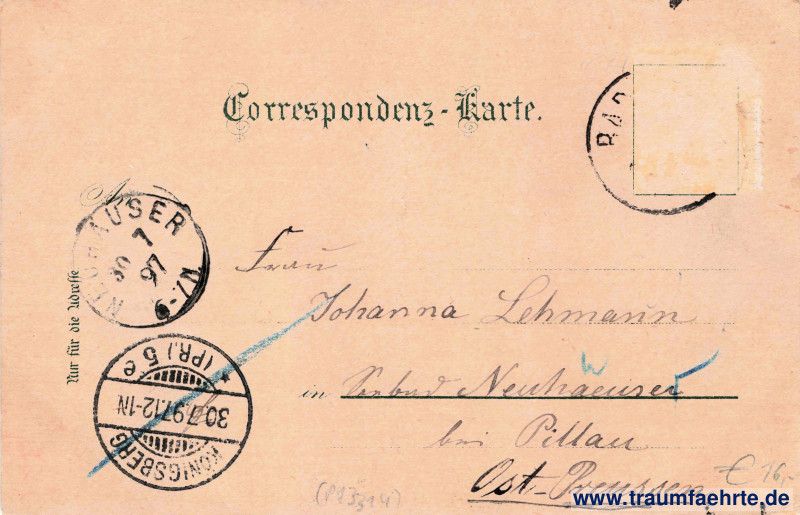 Correspondenz-Karte.
BAD
An
NEUHÄUSER
30 7
97
6-7N
Nur für die Adresse
Frau
Johanna Lehmann
in Seebad Neuhaeuser
bei Pillau
Ost-Preussen
KÖNIGSBERG
30.7.97.12-1N
(PR.) 5 e
*
(P13314)
€ 16,-
www.traumfaehrte.de